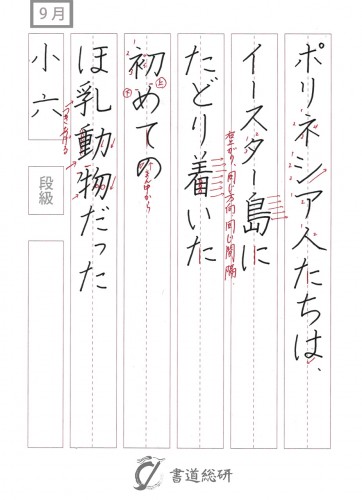 9月
ポリネシア人たちは、
イースター島に
右上がり、同じ方向、同じ間隔
たどり着いた
初めての
まん中から
ほ乳動物だった
つき上げる
小六
段級
書道総研